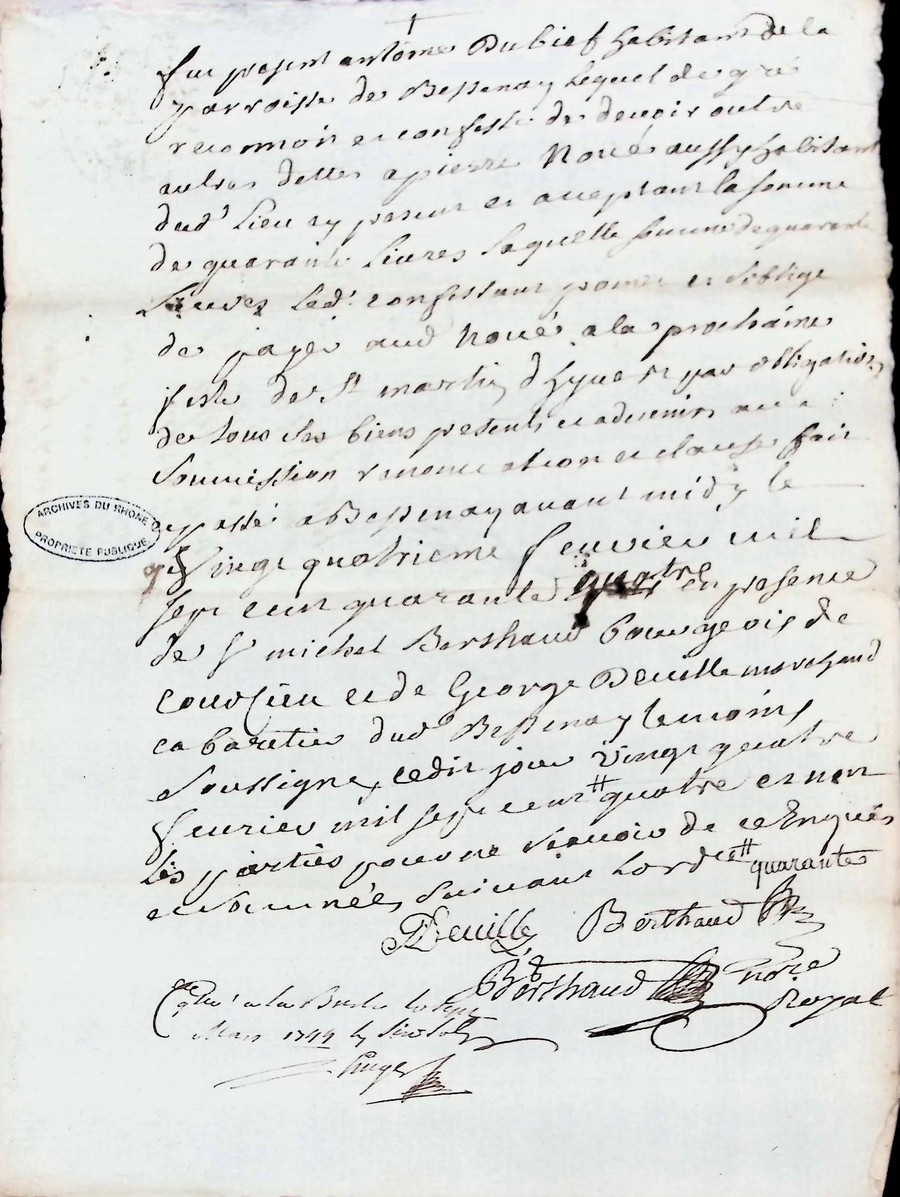 fut present antoine Dubief habitant de la
parroisse de Bessenay lequel de gré
reconnoit et confesse de devoir outre
autres dettes a pierre Noué aussy habitant
dud. Lieu cy present et acceptant la somme
de quarante livres laquelle somme de quarante
Livres led. confessant promet et soblige
de payer aud Noué a la prochaine
feste de St martin d'hyver par obligation
de tous ses biens presents et advenir
soumission renonciation et clauses fait
et passé a Bessenay avant midy le
Vingt quatrieme fevrier mil
sept cent quarante quatre en presence
de sr michel Berthaud bourgeois de
Courzieu et de George Deville marchand
cabaretier dud Bessenay temoins
soussigné, cedit jour vingt quatre
fevrier mil sept cent # quatre et non
les parties pour ne sçavoir de ce Enquis
et sommées suivant Lord.ce # quarante
Deville Berthaud
Berthaud nore
Royal
le
Mars 1744
ARCHIVES DU RHONE
PROPRIETE PUBLIQUE